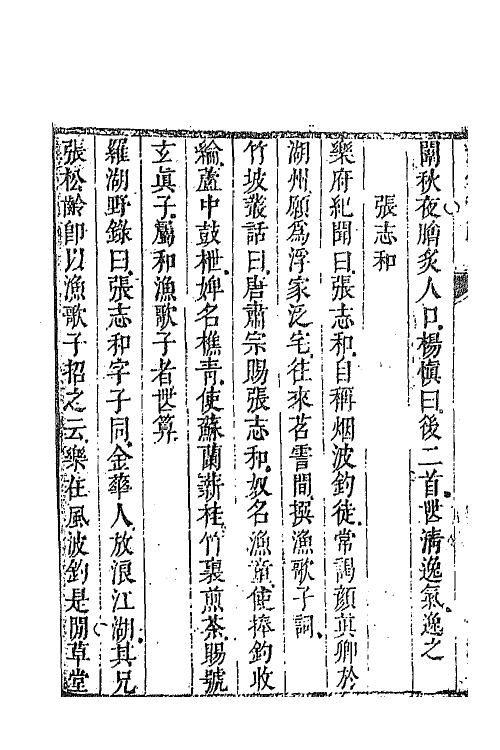 關秋夜膾炙人口楊愼曰後二首世淸逸氣逸之
張志和
樂府紀聞曰張志和自稱烟波釣徒常謁顔眞卿於
湖州願爲浮家泛宅往來苕霅間撰漁歌子詞
竹坡叢話曰唐肅宗賜張志和奴名漁童使捧釣收
綸蘆中鼓枻婢名樵靑使蘇蘭薪桂竹裏煎茶賜號
玄眞子屬和漁歌子者世算
羅湖野錄曰張志和字子同金華人放浪江湖其兄
張松齡卽以漁歌子招之云樂在風波釣是閒草堂